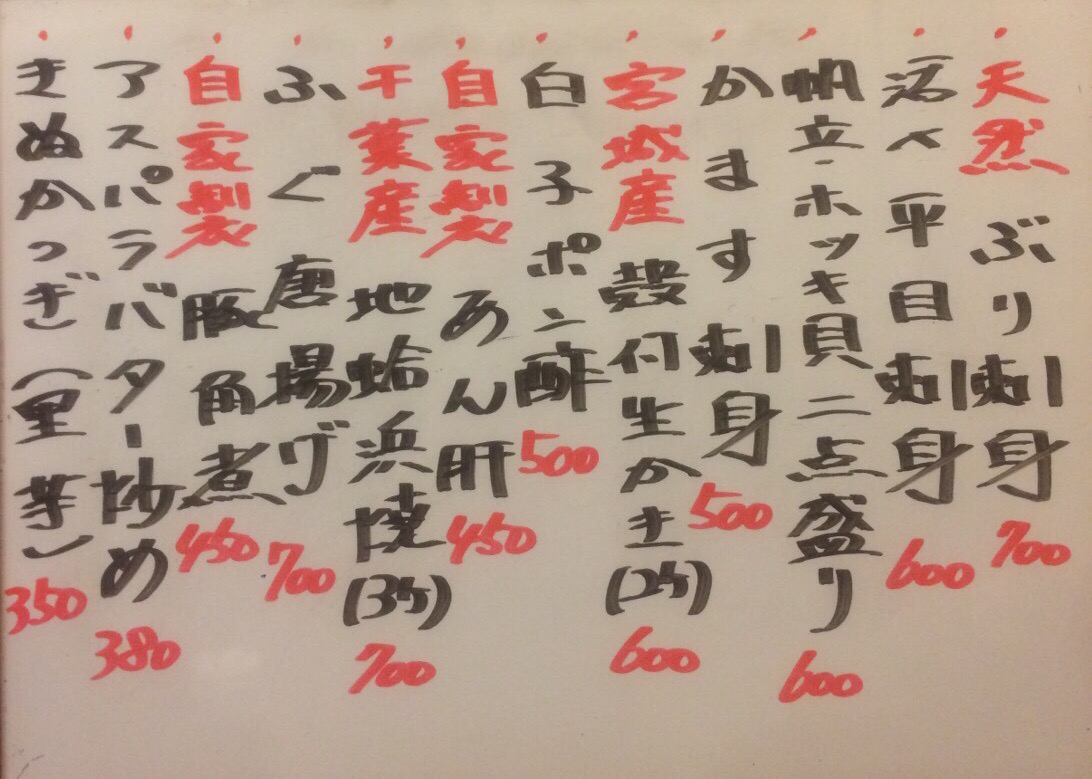 ・天然 ぶり刺身 700
・活〆 平目刺身 600
・帆立・ホッキ貝二点盛り 600
・かます刺身 500
・宮城産 殻付生かき(2ケ) 600
・白子ポン酢 500
・自家製 あん肝 450
・千葉産 地蛤浜焼(3ケ) 700
・ふぐ唐揚げ 700
・自家製 豚角煮 450
・アスパラバター炒め 380
・きぬかつぎ(里芋) 350